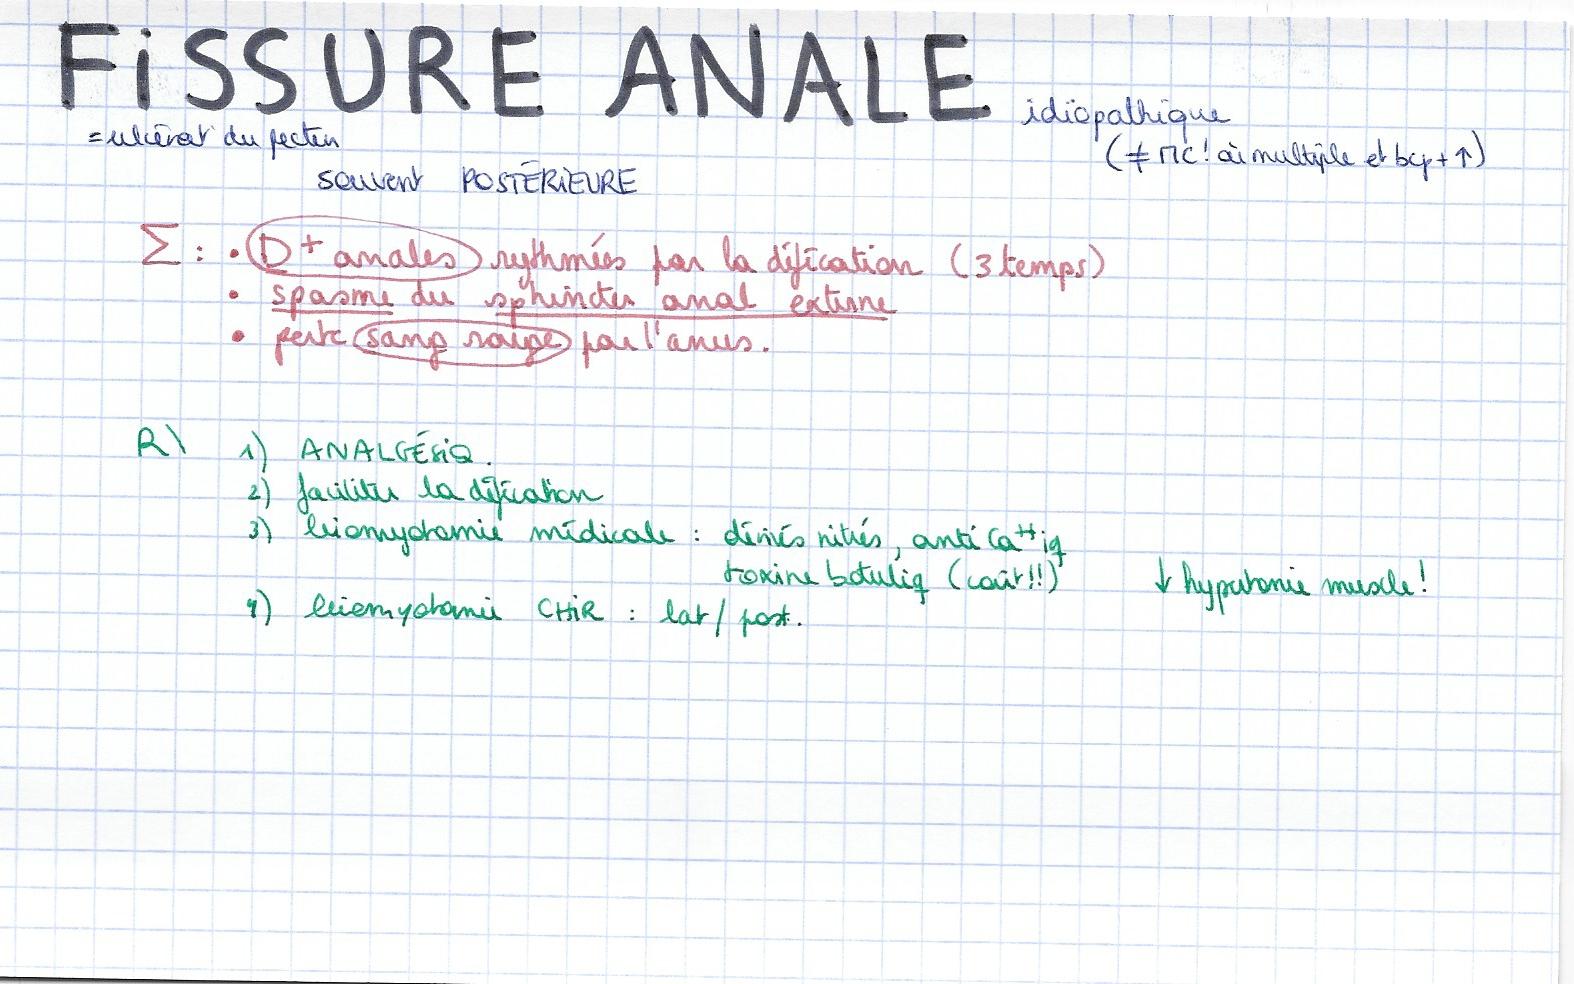 FiSSURE ANALE idiopathique
= ulcérat° du pecten
(≠ MC! où multiple et bcp + ↑)
souvent POSTÉRIEURE
Σ : • D+ anales rythmées par la défication (3 temps)
• spasme du sphincter anal externe
• perte sang rouge par l'anus.
R\ 1) ANALGÉSiQ.
2) faciliter la défication
3) leiomyotomie médicale : dérivés nitrés, anti Ca++iq
toxine botuliq (coût!!) ↓ hypertonie muscle!
4) leiomyotomie CHiR : lat / post.